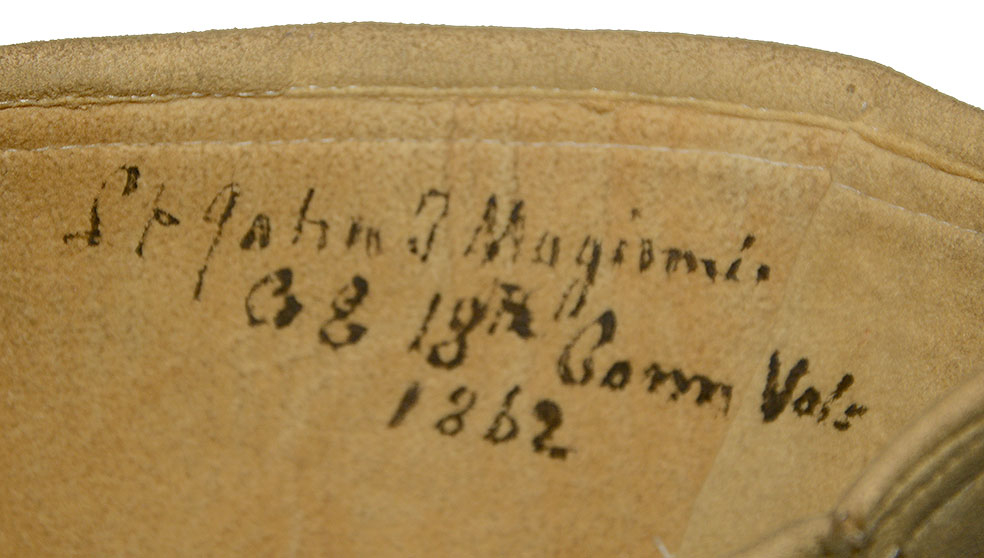 Lt John T Maginnis.
Co E 18th Conn Vols
1862